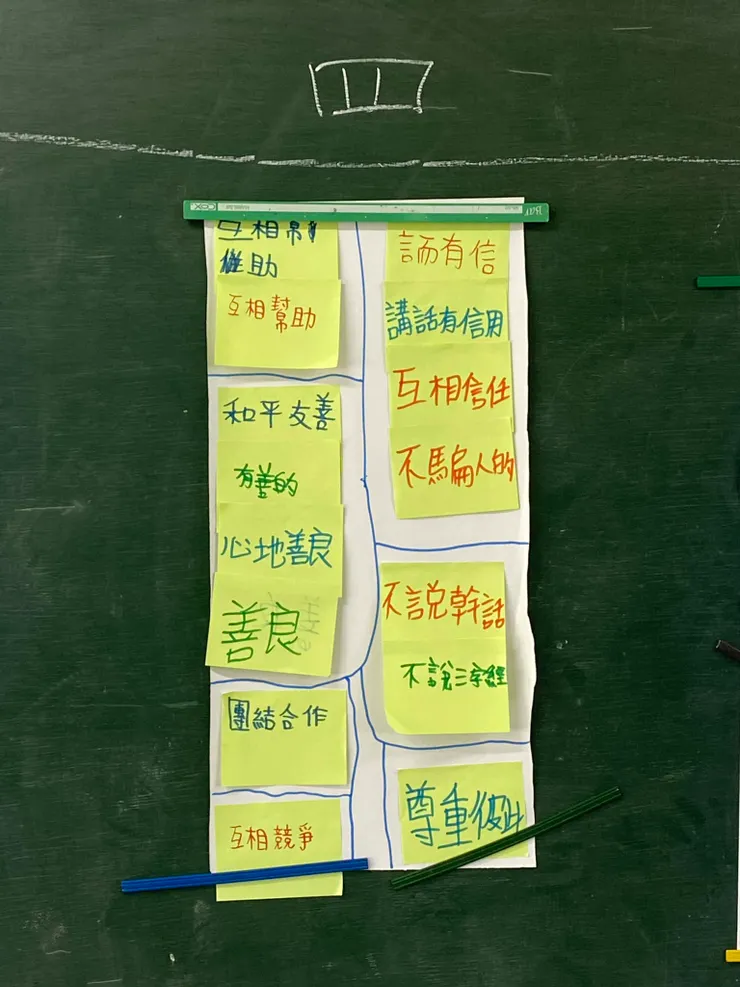 互相幫
助
互相幫助
和平友善
有善的
心地善良
善良
團結合作
互相競爭
言而有信
講話有信用
互相信任
不騙人的
不說幹話
不說三字經
尊重彼此